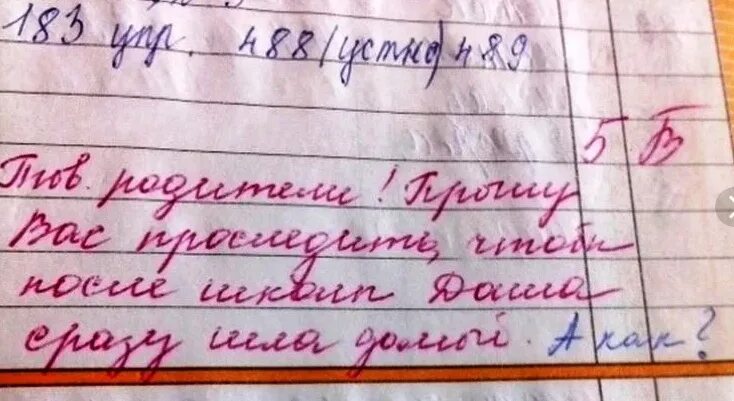 183 упр. 488 (устно) 489
5 В
Тов. родители! Прошу
Вас проследить, чтобы
после школы Даша
сразу шла домой. А как?